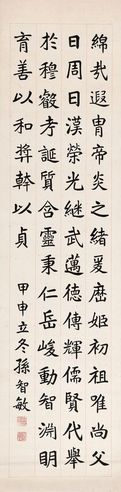 綿哉遐冑帝炎之緒爰歷姬初祖唯尚父
曰周曰漢榮光繼武邁德傳輝儒賢代舉
於穆叡考誕質含靈秉仁岳峻動智淵明
育善以和獎幹以貞
甲申立冬孫智敏